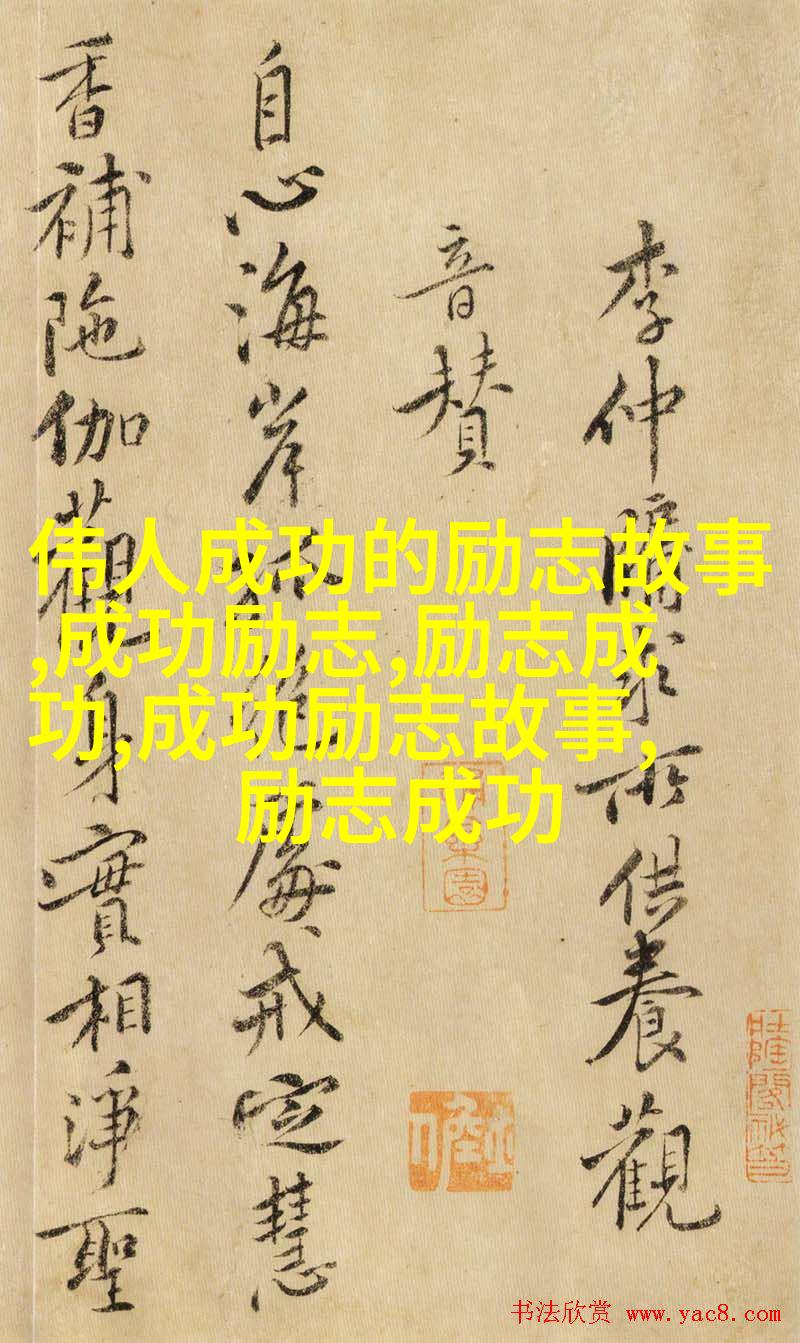 李仲牖求所供養觀
音賛
自心海岸孤絶處戒定慧
香補陁伽觀身實相淨聖
伟人成功的励志故事
,成功励志,励志成
功,成功励志故事,
励志成功
书法欣赏 www.yac8.com